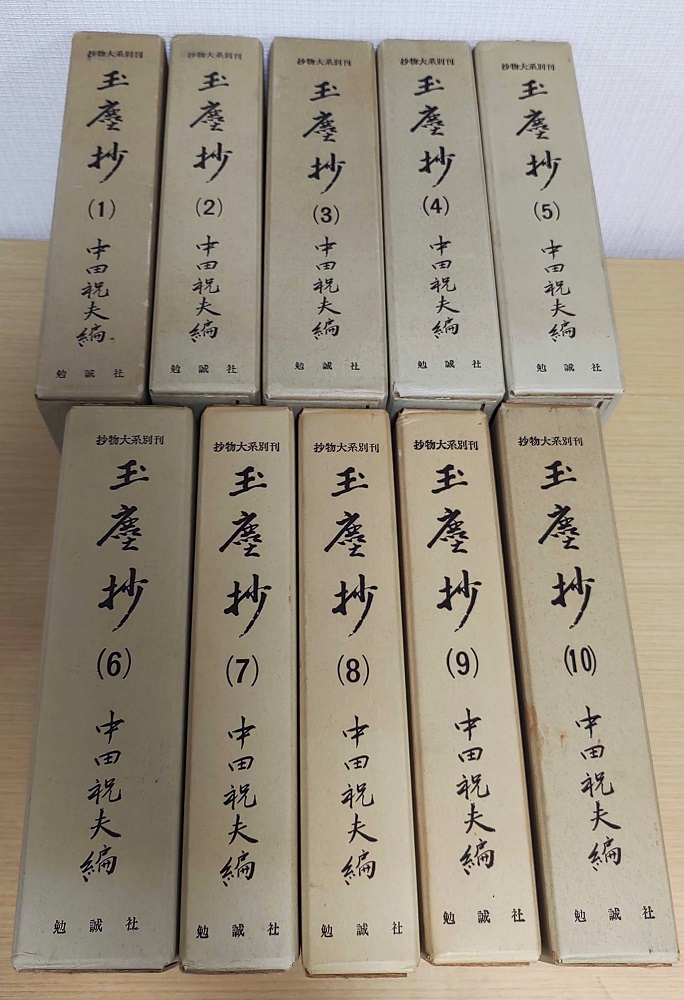 抄物大系別刊
玉塵抄
(1)
中田祝夫編
勉誠社
抄物大系別刊
玉塵抄
(2)
中田祝夫編
勉誠社
抄物大系別刊
玉塵抄
(3)
中田祝夫編
勉誠社
抄物大系別刊
玉塵抄
(4)
中田祝夫編
勉誠社
抄物大系別刊
玉塵抄
(5)
中田祝夫編
勉誠社
抄物大系別刊
玉塵抄
(6)
中田祝夫編
勉誠社
抄物大系別刊
玉塵抄
(7)
中田祝夫編
勉誠社
抄物大系別刊
玉塵抄
(8)
中田祝夫編
勉誠社
抄物大系別刊
玉塵抄
(9)
中田祝夫編
勉誠社
抄物大系別刊
玉塵抄
(10)
中田祝夫編
勉誠社